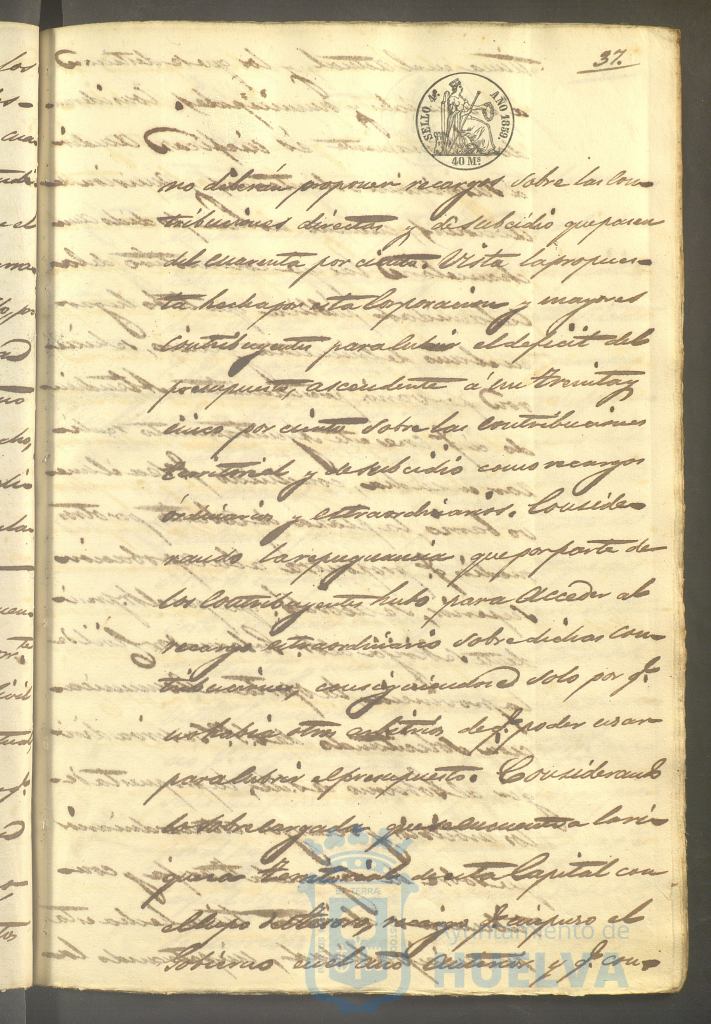 37.
SELLO 4º AÑO 1859.
40 Ms
no deberán proponer recargos sobre las con-
tribuciones directas y de subcidio que pasen
del cuarenta por ciento. Vista la propues-
ta hecha por esta Corporacion y mayores
contribuyentes para cubrir el deficit del
presupuesto, ascendente á un treinta y
cinco por ciento sobre las contribuciones
territorial y de subcidio como recargos
ordinarios y estraordinarios. Conside-
rando la repugnancia que por parte de
los contribuyentes hubo para acceder al
recargo estraordinario sobre dichas con-
tribuciones, solo por qe.
no habia otros arbitrios de qe. poder usar
para cubrir el presupuesto. Considerando
lo sobrecargada que se encuentra la ri-
queza territorial de esta Capital con
el cupo del tesoro, recargo qe. impuso el
Gobierno y qe. con-
Ayuntamiento de
HUELVA